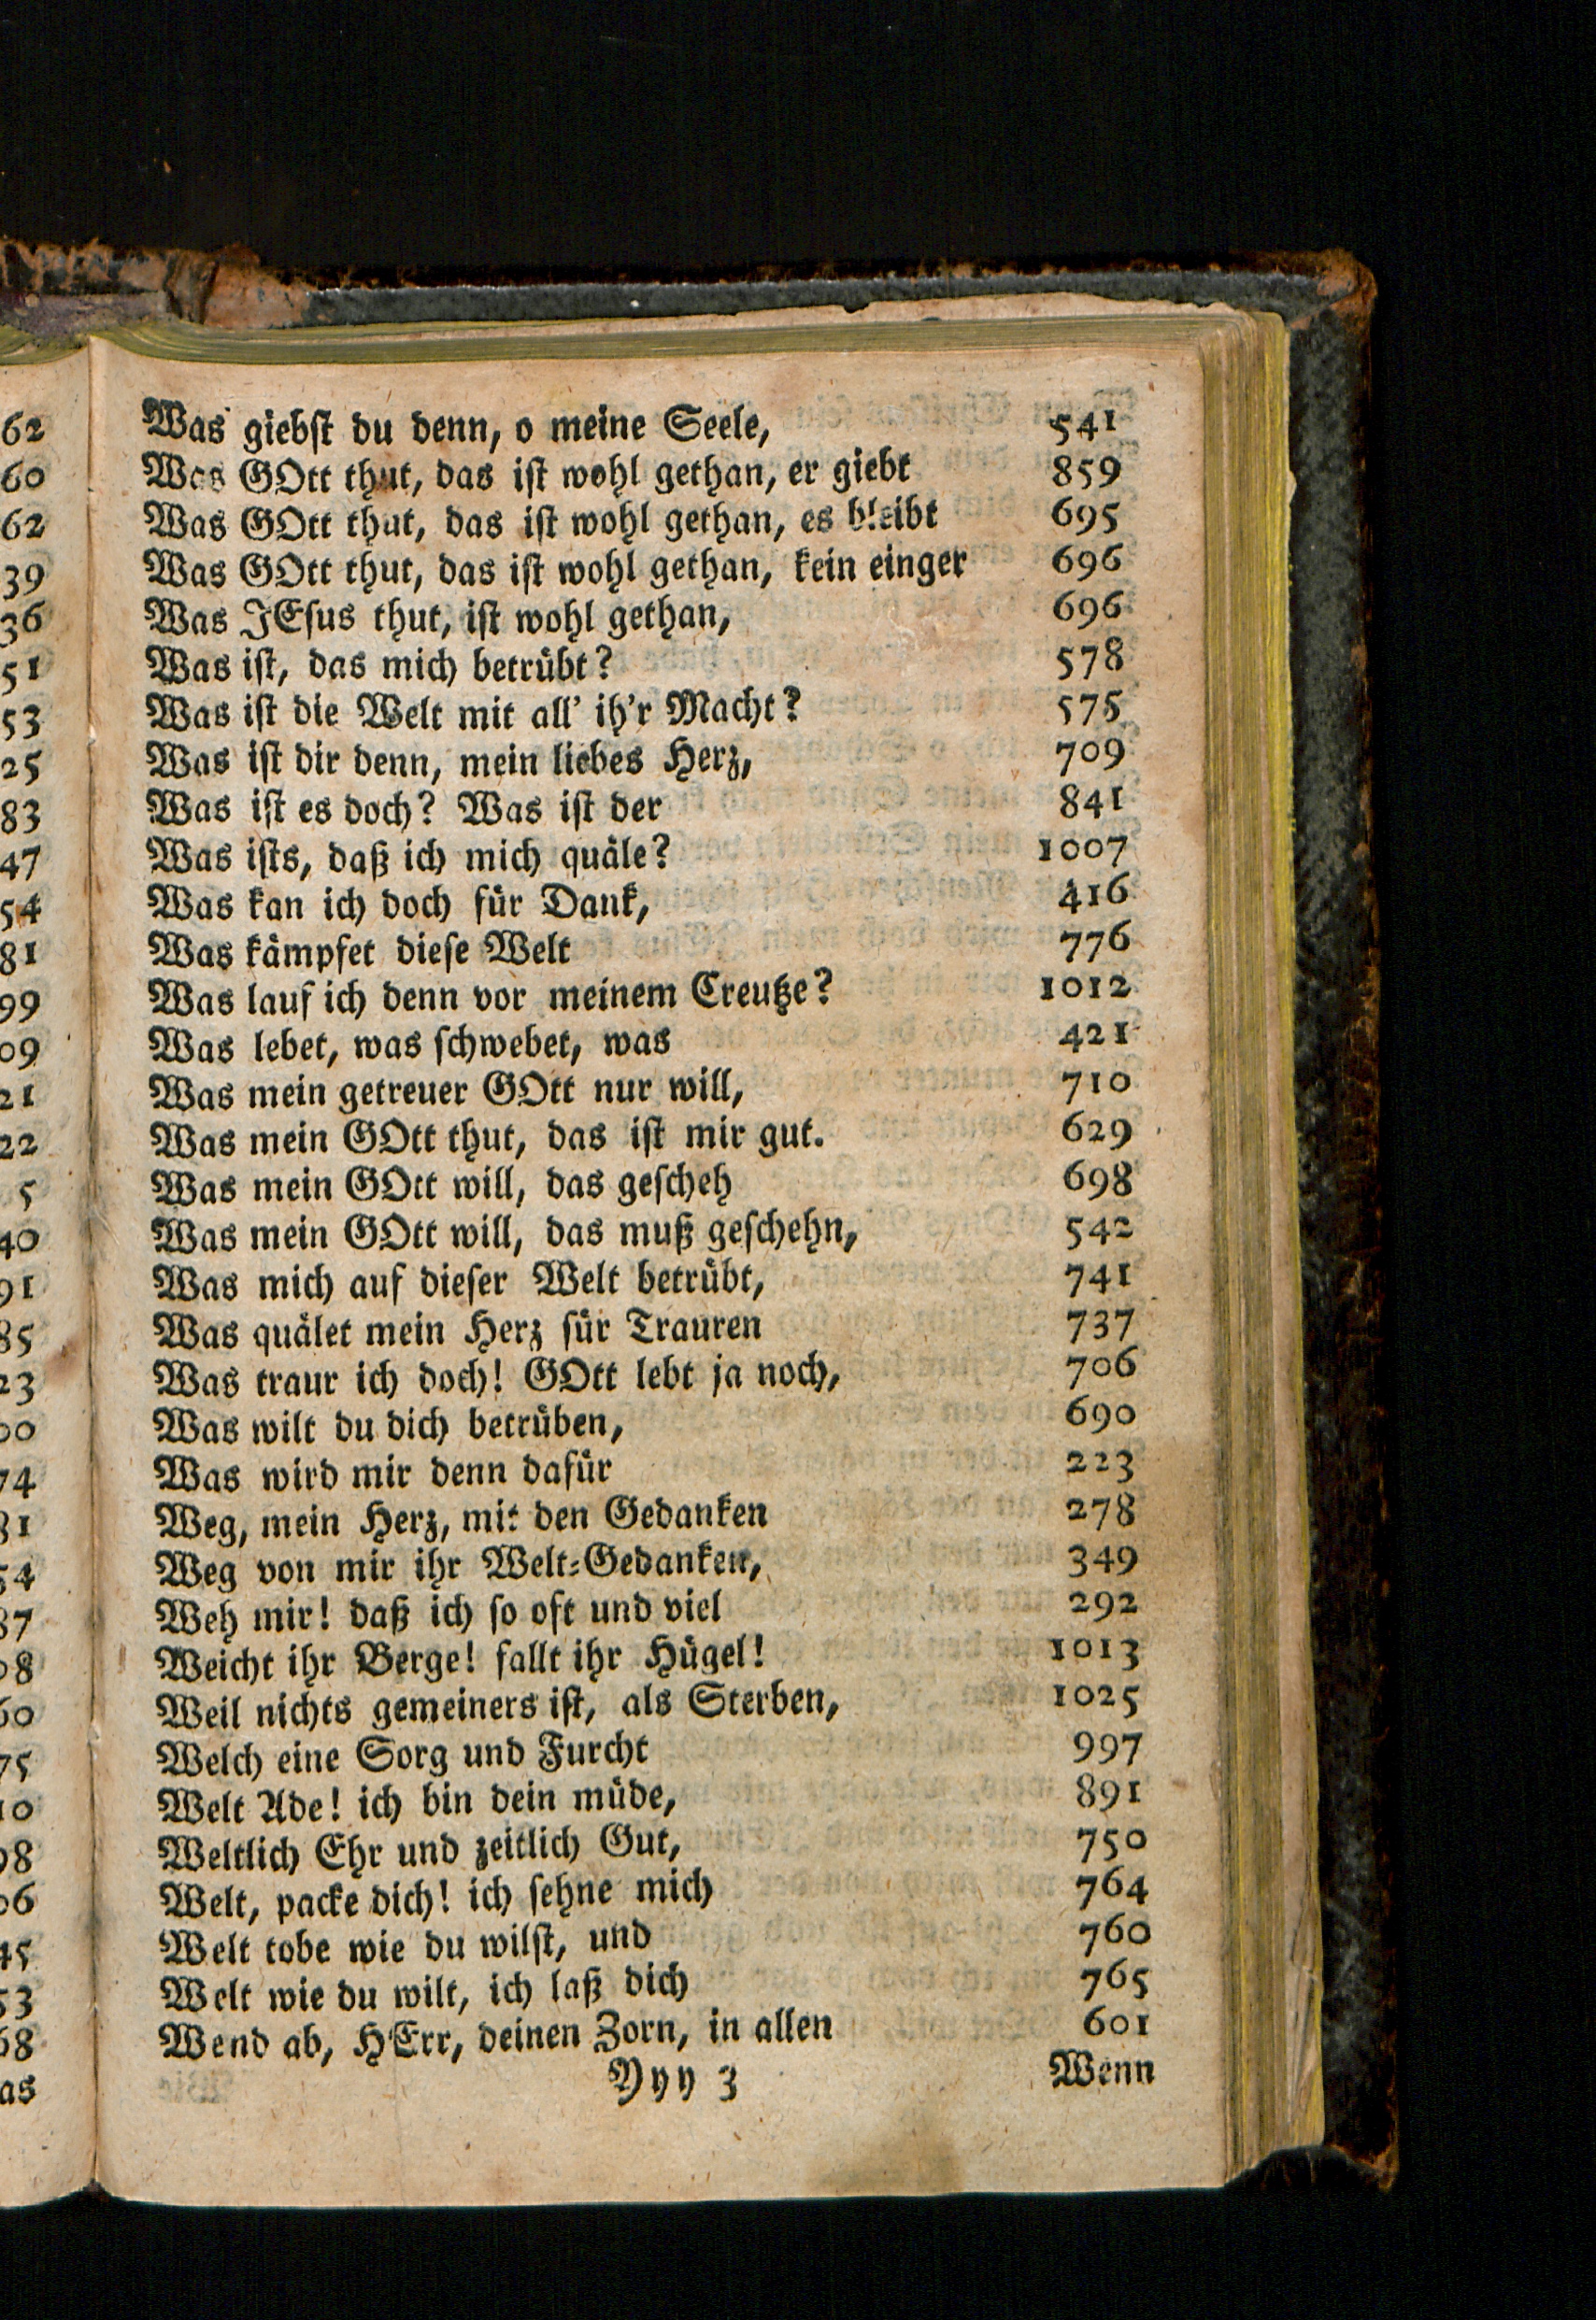 Was giebst du denn, o meine Seele, 541
Was GOtt thut, das ist wohl gethan, er giebt 859
Was GOtt thut, das ist wohl gethan, es bleibt 695
Was GOtt thut, das ist wohl gethan, kein einger 696
Was JEsus thut, ist wohl gethan, 696
Was ist, das mich betrübt? 578
Was ist die Welt mit all' ih'r Macht? 575
Was ist dir denn, mein liebes Herz, 709
Was ist es doch? Was ist der 841
Was ists, daß ich mich quäle? 1007
Was kan ich doch für Dank, 416
Was kämpfet diese Welt 776
Was lauf ich denn vor meinem Creutze? 1012
Was lebet, was schwebet, was 421
Was mein getreuer GOtt nur will, 710
Was mein GOtt thut, das ist mir gut. 629
Was mein GOtt will, das gescheh 698
Was mein GOtt will, das muß geschehn, 542
Was mich auf dieser Welt betrübt, 741
Was quälet mein Herz für Trauren 737
Was traur ich doch! GOtt lebt ja noch, 706
Was wilt du dich betrüben, 690
Was wird mir denn dafür 223
Weg, mein Herz, mit den Gedanken 278
Weg von mir ihr Welt-Gedanken, 349
Weh mir! daß ich so oft und viel 292
Weicht ihr Berge! fallt ihr Hügel! 1013
Weil nichts gemeiners ist, als Sterben, 1025
Welch eine Sorg und Furcht 997
Welt Ade! ich bin dein müde, 891
Weltlich Ehr und zeitlich Gut, 750
Welt, packe dich! ich sehne mich 764
Welt tobe wie du wilst, und 760
Welt wie du wilt, ich laß dich 765
Wend ab, HErr, deinen Zorn, in allen 601
Yyy 3 Wenn